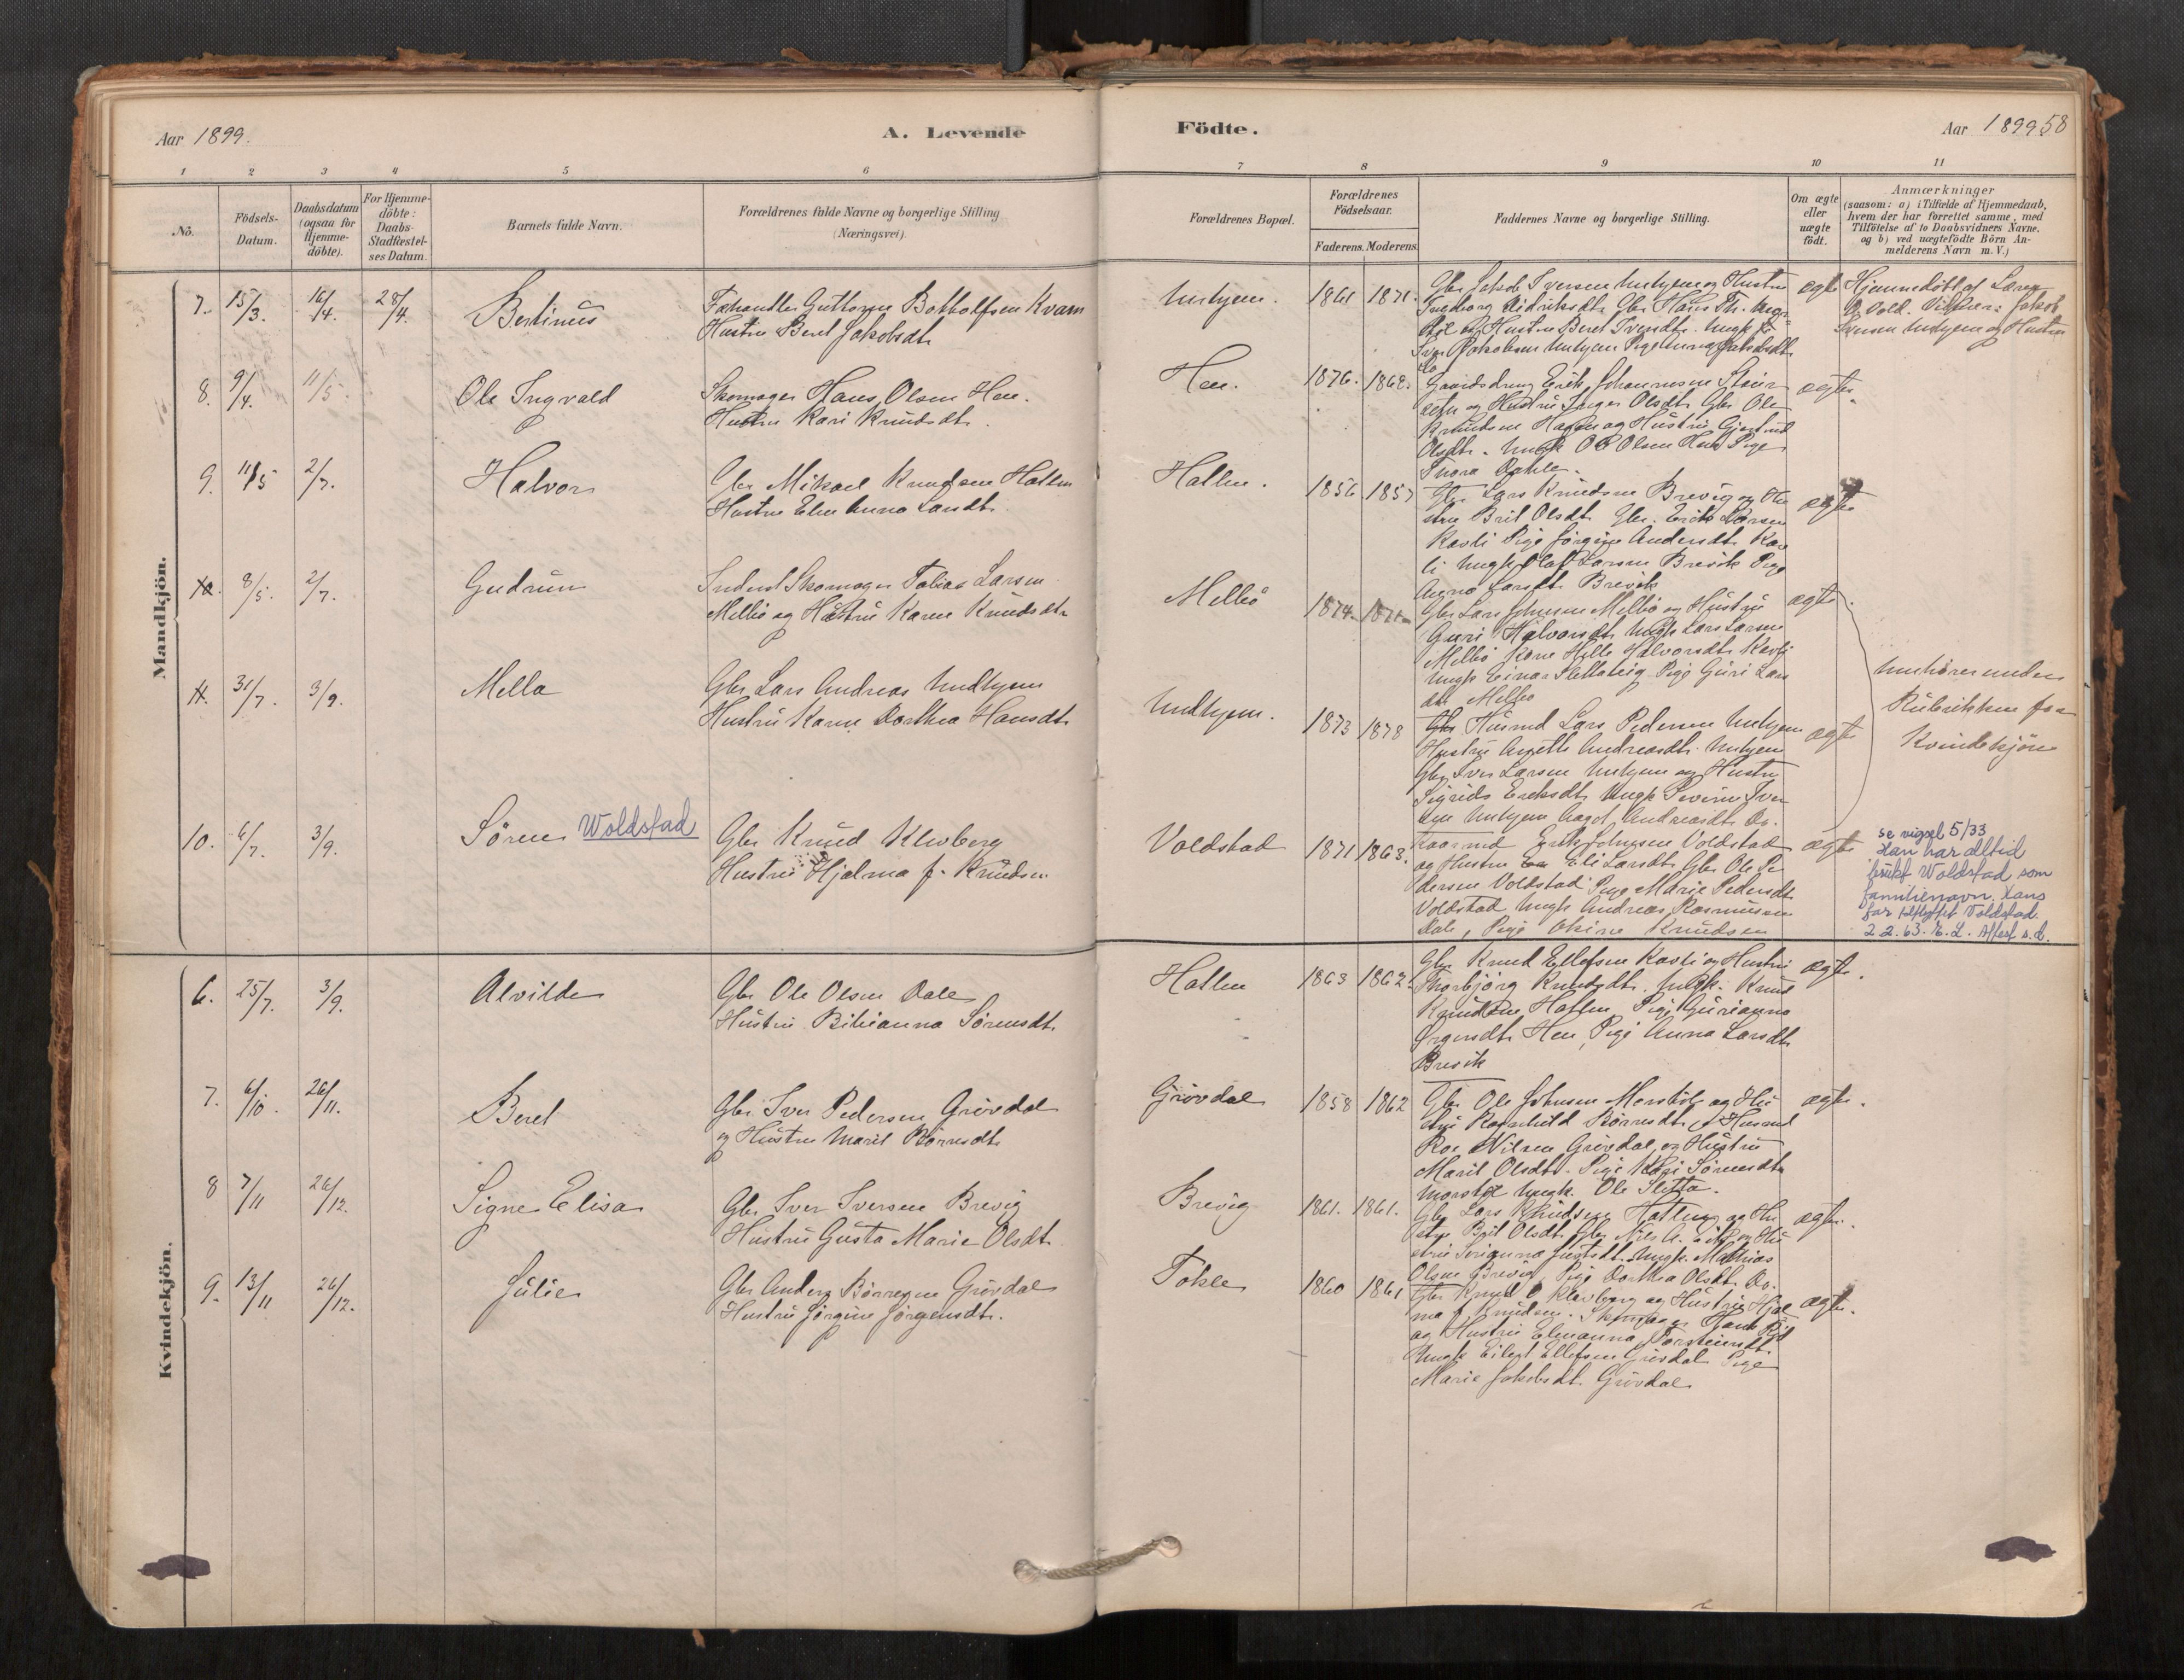 Aar 1899.
A. Levende
Födte.
Aar 1899
58
1 2 3 4 5 6
7 8 9 10 11
No.
Födsels-
Datum.
Daabsdatum
(ogsaa for
Hjemme-
döbte).
For Hjemme-
döbte:
Daabs-
Stadfæstel-
ses Datum.
Barnets fulde Navn.
Forældrenes fulde Navne og borgerlige Stilling
(Næringsvei).
Forældrenes Bopæl.
Forældrenes
Födselsaar.
Faderens. Moderens.
Faddernes Navne og borgerlige Stilling.
Om ægte
eller
uægte
födt.
Anmærkninger
(saasom: a) i Tilfælde af Hjemmedaab,
hvem der har forrettet samme, med
Tilföielse af to Daabsvidners Navne.
og b) ved uægtefödte Börn An-
melderens Navn m. V.)
Mandkjön.
7. 15/3. 16/4. 28/4. Bertinus
Guttorm Bottolfsen Kvam
Hustru Beret Jakobsdt.
1861 1871.
Gbr Jakob Iversen og Hustru
Ingeborg Didriksdt. Gbr Hans
og Hustru Beret Iversdt. Ungk.
Iver Jakobsen Pige Jakobsdt.
Do
ægte
Hjemmedöbt af Lærer
Vold. Vidner: Jakob
Iversen og Hustru
8. 9/4. 11/5. Ole Ingvald
Skomager Hans Olsen Hen.
Hustru Kari Knudsdt.
Hen.
1876. 1868.
Gaardsdreng Erik Johannesen
og Hustru Inger Olsdt. Gbr Ole
Knudsen Hagen og Hustru Gjertrud
Olsdt. Ungk Ole Olsen Hen Pige
Dahle.
ægte.
9. 11/5 2/7. Halvor
Gbr Mikael Knudsen Hatlen
Hustru Elen Anna Larsdt.
Hatlen.
1856 1857
Gbr Lars Knudsen Brevig og Hu
stru Brit Olsdt. Gbr. Erik Larsen
Kavli Pige Jörgine Andersdt. Kav
li Ungk Olaf Larsen Brevik Pige
Anna Larsdt. Brevik
ægte
10. 8/5. 2/7. Gudrun
Inderst Skomager Tobias Larsen
Melbö og Hustru Karen Knudsdt.
Melbö
1874. 1871
Gbr Lars Johnsen Melbö og Hustru
Guri Halvorsdt. Ungk Lars Larsen
Melbö Kone Helle Halvorsdt. Kavli
Ungk Einar Slettebeig Pige Guri Lars
dt. Melbö
ægte.
11. 31/7. 3/9. Mella
Gbr Lars Andreas Undhjem
Hustru Karen Dorthea Hansdt.
Undhjem.
1873 1878
Gbr Husmd Lars Pedersen
Hustru Anette Andreasdt.
Gbr Iver Larsen og Hustru
Sigrids Eriksdt. Ungk Iver
sen Aagot Andreasdt. Do.
ægte
henhörer under
Rubrikken for
Kvindekjön
10. 6/7. 3/9. Sören Woldstad
Gbr Knud Klevberg
Hustru Hjalma f. Knudsen
Voldstad
1871 1863.
Erik Johnsen Voldstad
og Hustru Eli Larsdt. Gbr Ole Pe
dersen Voldstad Pige Marie Pedersdt.
Voldstad Ungk Andreas Rasmussen
Dale, Pige Oline Knudsen
ægte
se vigsel 5/33
Han har alltid
brukt Woldstad som
familienavn. Hans
far tilflyttet Voldstad.
2.2.63. E.L. Attest s.d.
Kvindekjön.
6. 25/7. 3/9. Alvilde
Gbr Ole Olsen Dale
Hustru Birianna Sörensdt.
Hatlen
1863 1862.
Gbr Knud Ellefsen Kavli og Hustru
Thorbjörg Knudsdt. Ungk. Knud
Knudsen Hatlen Pige Gurianna
Jörgensdt. Hen, Pige Anna Larsdt.
Brevik
ægte.
7. 6/10. 26/11. Beret
Gbr Iver Pedersen Grövdal
og Hustru Marit Börresdt.
Grövdal
1858 1862
Gbr Ole Johnsen Morstöl og Hu
stru Ragnhild Börresdt. Husmd
Roe Nilsen Grövdal og Hustru
Marit Olsdt. Pige Kari Sörensdt.
Morstöl Ungk. Ole Sletta.
ægte.
8 7/11 26/12. Signe Elisa
Gbr Iver Iversen Brevig
Hustru Gusta Marie Olsdt.
Brevig
1861. 1861.
Gbr Lars Knudsen Hatlen og Hu
stru Brit Olsdt. Gbr Nils og Hu
stru Ungk. Mathias
Olsen Brevig Pige Dorthea Olsdt. Do.
ægte.
9. 13/11 26/12. Julie
Gbr Anders Börresen Grövdal
Hustru Jörgine Jörgensdt.
Tokle
1860 1861
Gbr Knud Klevberg og Hustru Hjal
ma f. Knudsen. Skomager Hans
og Hustru Elenanna Torsteinsdt.
Ungk Eilert Ellefsen Grövdal Pige
Marie Jakobsdt. Grövdal
ægte.